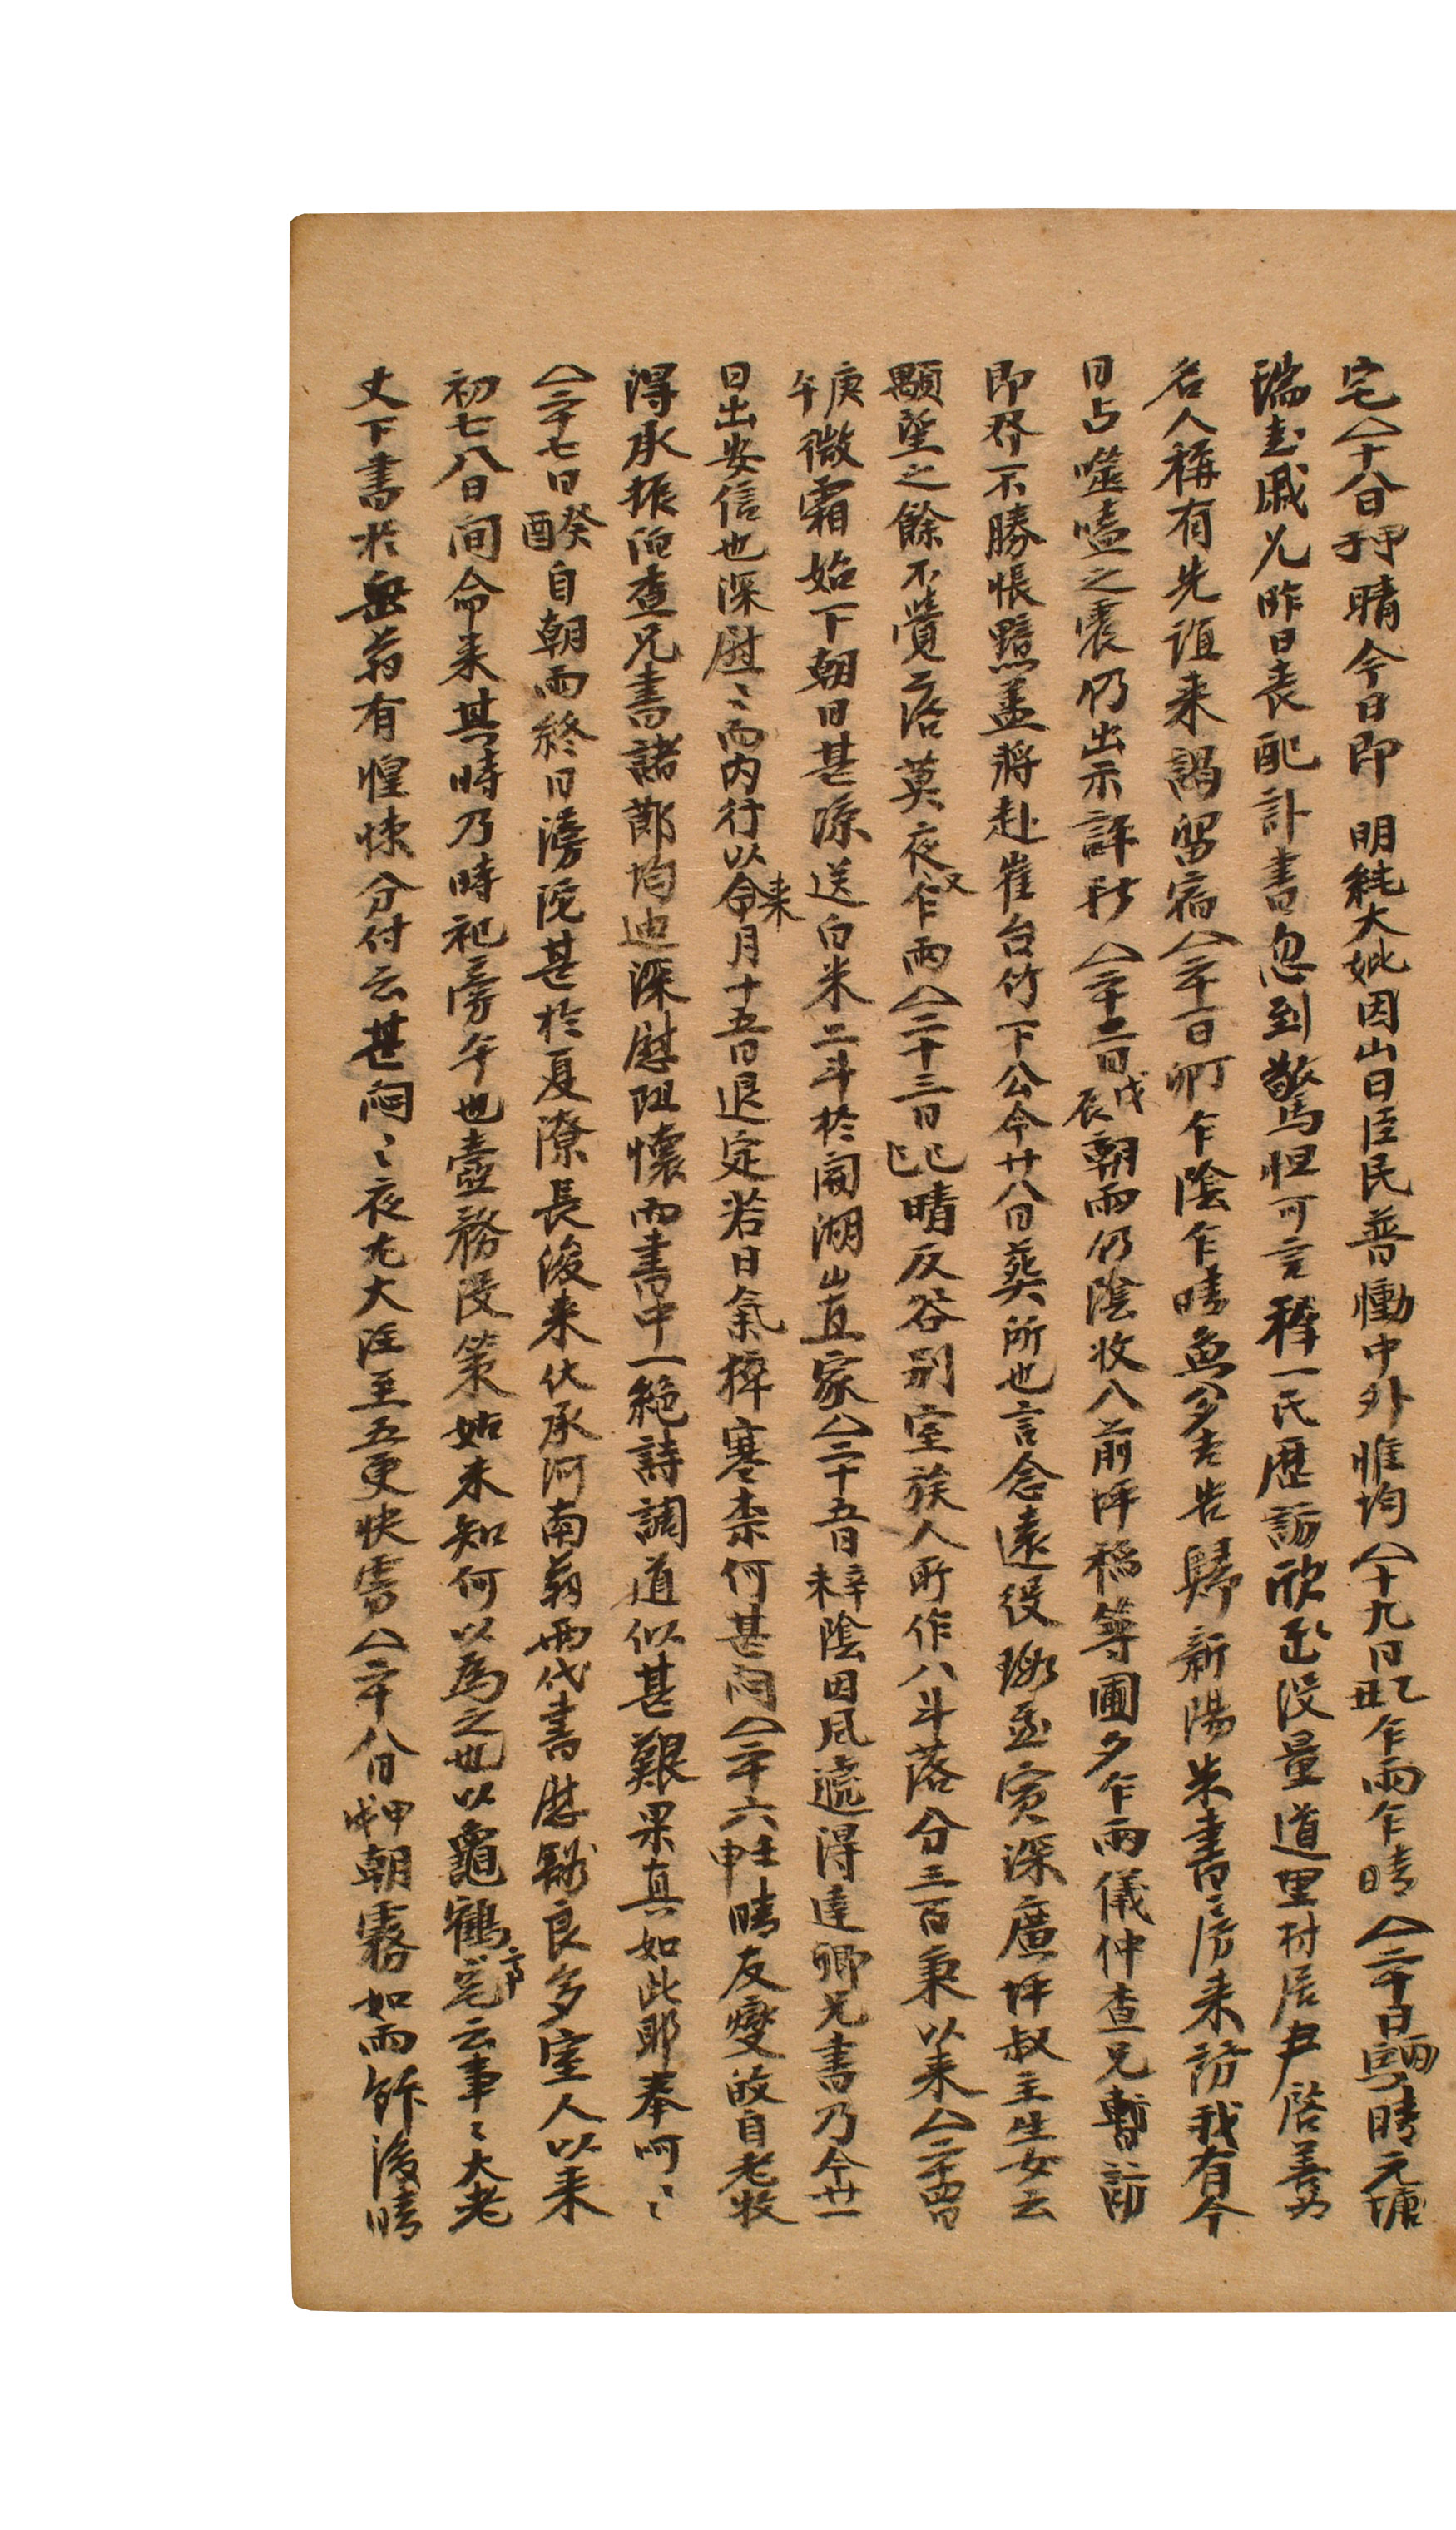 宅〈十八日甲子晴今日即 明純大妣因山日臣民普慟中外惟均〈十九日乙丑乍雨乍晴〈二十日丙寅晴元塘
瑞圭戚兄昨日丧配訃書忽到驚怛可言稺一氏歷訪欣 没量道里村居尹啓善
名人稱有先誼来謁留宿〈二十一日丁卯乍陰乍晴魚 告歸新陽朱書房来訪我有今
日占噬嗑之震仍出示評 〈二十二日戊辰朝雨仍陰收八前坪稻等圃夕乍雨儀仲查兄暫訪
即 不勝悵黯盖將赴崔台竹下公今廿八日葬所也言念遠役 深廣坪叔主生女云
顒望之餘不覺落莫夜又乍雨〈二十三日己巳晴反谷别室族人所作八斗落分三百秉以来〈二十四日
庚午微霜始下朝日甚凉送白米二斗於 湖山直家〈二十五日辛未陰因凨遞得達卿兄書乃今廿一
日出安信也深慰ミ而内行以来命月十五日退定若日氣猝寒柰何甚悶〈二十六壬申晴友燮敀自老牧
淂承振 查兄書諸節均迪深慰阻懷而書中一絶詩調道似甚艱果真如此耶奉呵ミ
〈二十七日癸酉自朝雨終日滂沱甚於夏潦長浚来伏承河南 兩代書慰 良多室人以来
初七八日間命来其時乃時祀旁午也壺務没策姑未知何以為之也以龜鶴亭宅云事ミ大老
丈下書於岳翁有惶悚分付云甚悶ミ夜尤大注至五更快霽〈二十八日甲戌朝霧如雨 後晴